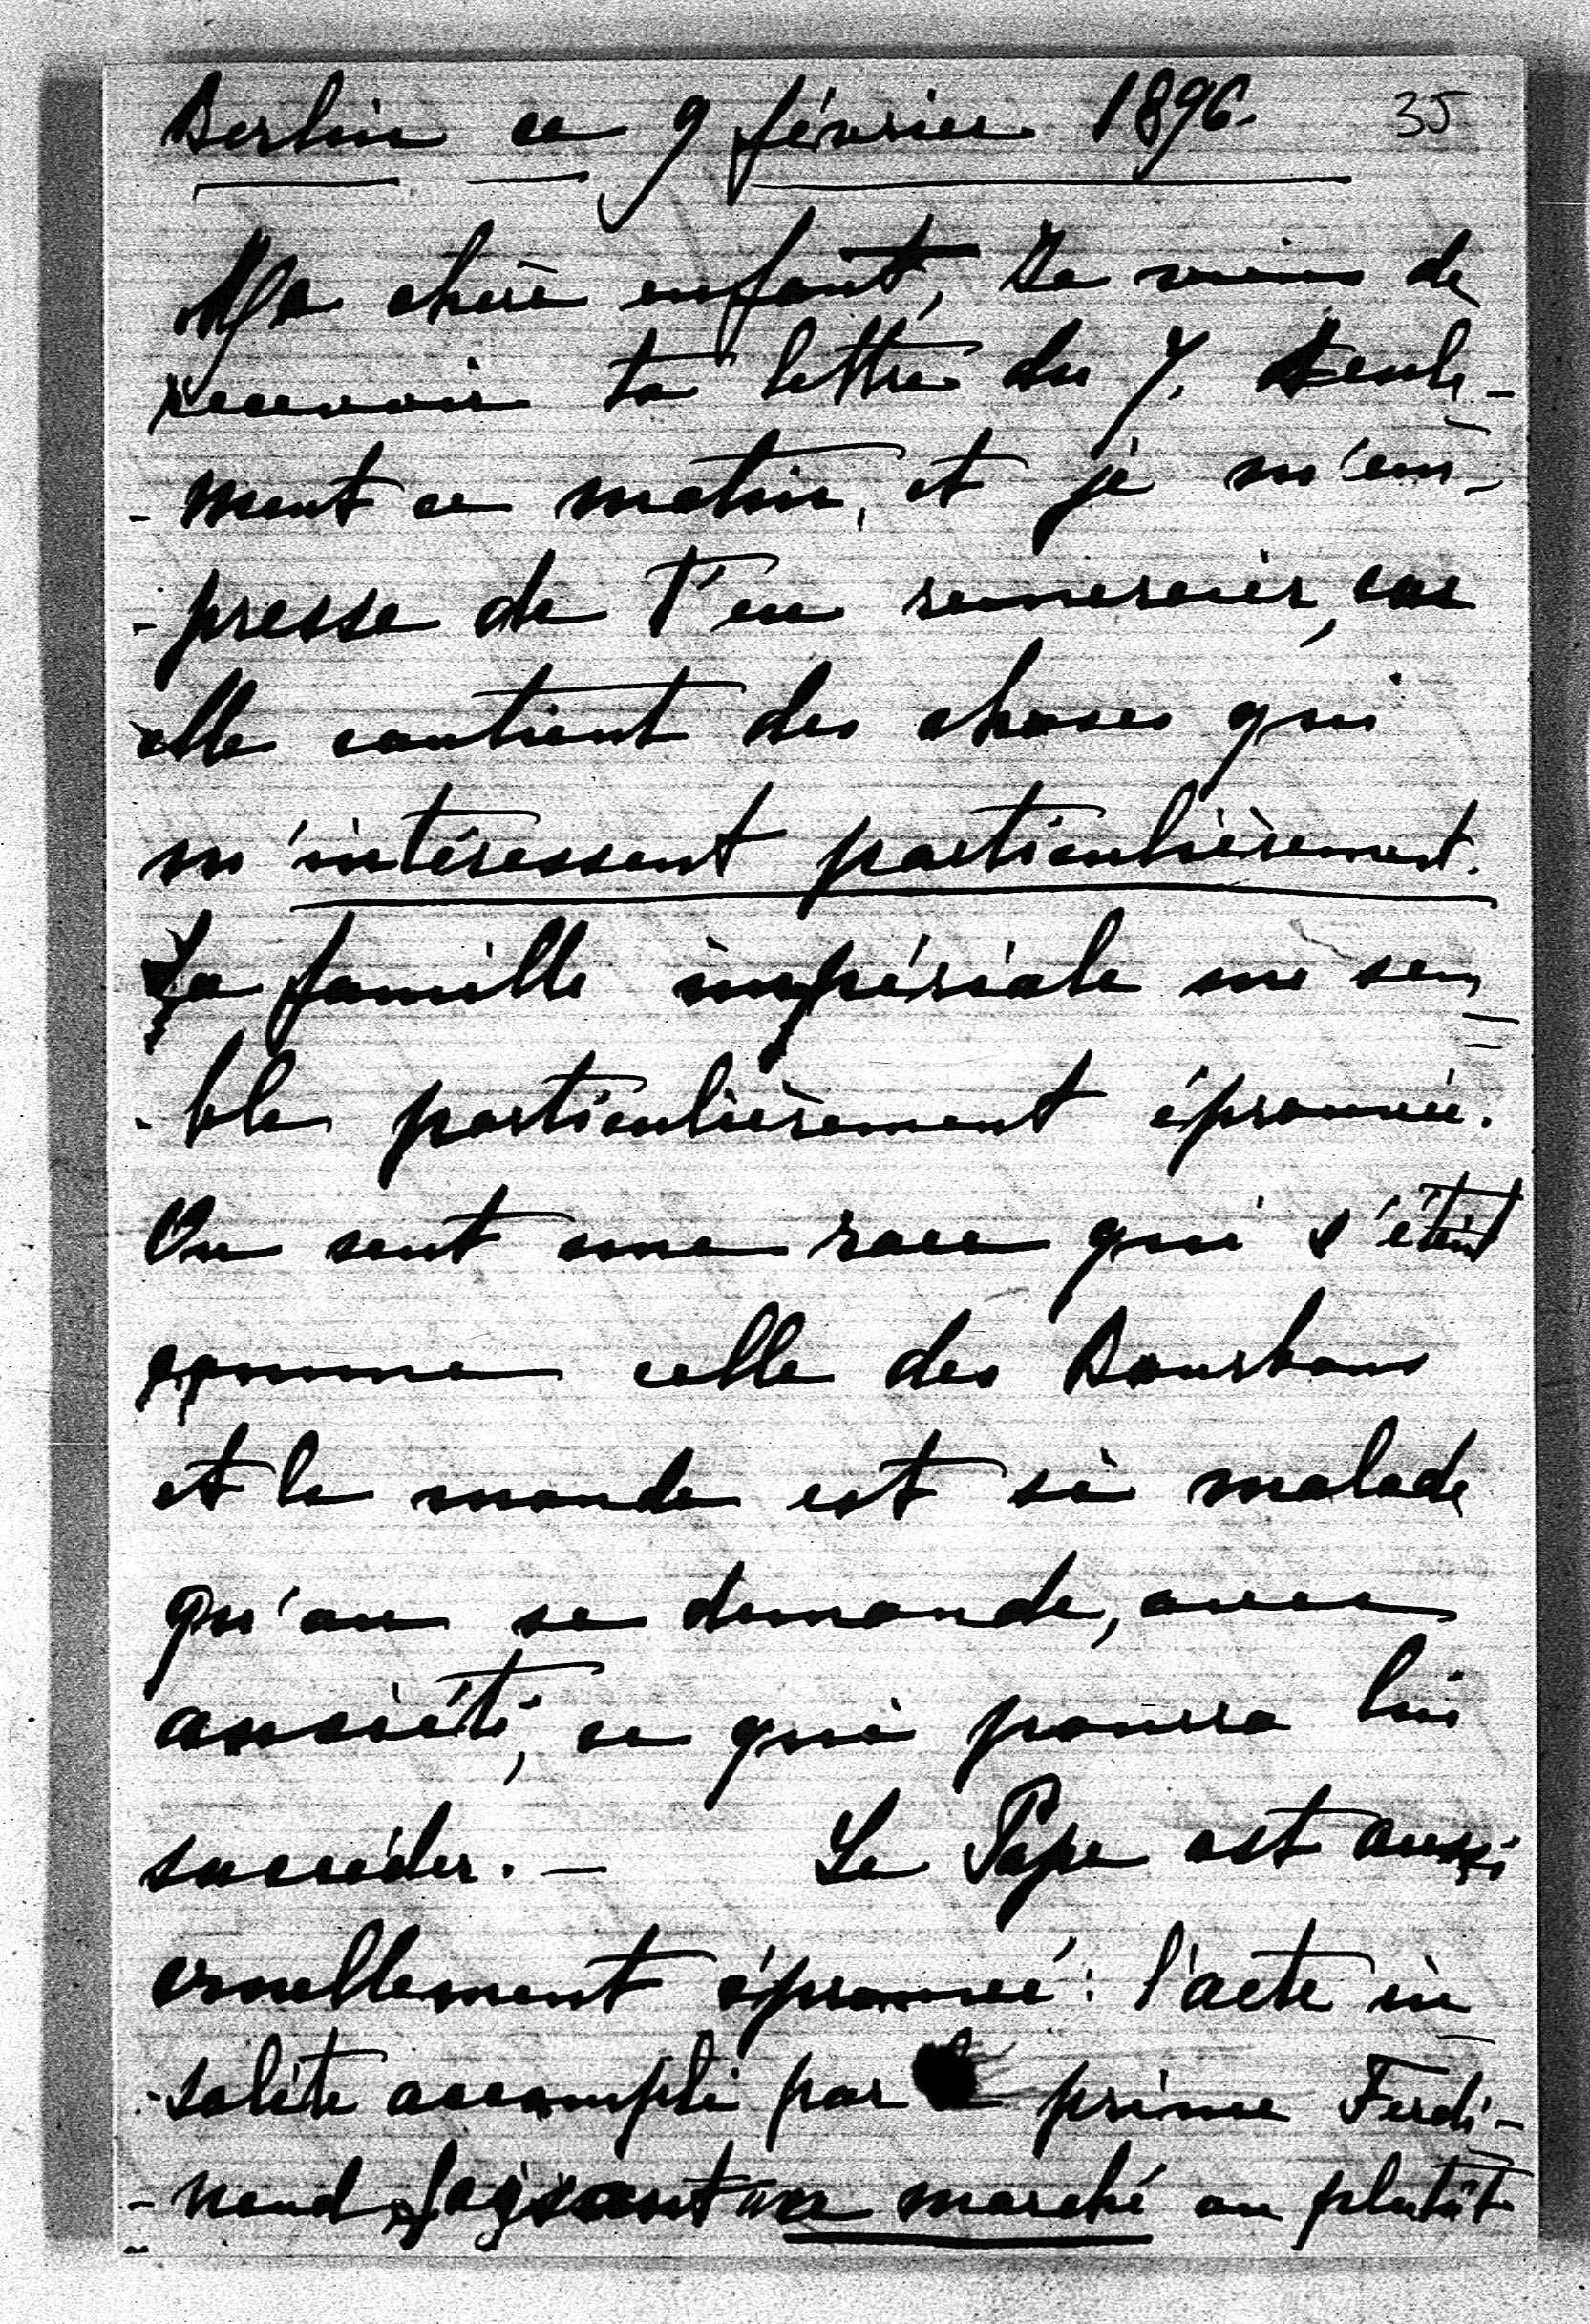 Berlin ce 9 février 1896. 35
Ma chère enfant, Je viens de
recevoir ta lettre du 7. Seule-
-ment ce matin, et je m'em-
-presse de t'en remercier, car
elle contient des choses qui
m'intéressent particulièrement.
La famille impériale me sem-
-ble particulièrement éprouvée.
On sent une race qui s'éteint
comme celle des Bourbons
et le monde est si malade
qu'on se demande, avec
anxiété, ce qui pourra lui
succéder. — Le Pape est aussi
cruellement éprouvé : l'acte in
-solite accompli par le prince Ferdi-
-nand, faisant un marché ou plutôt